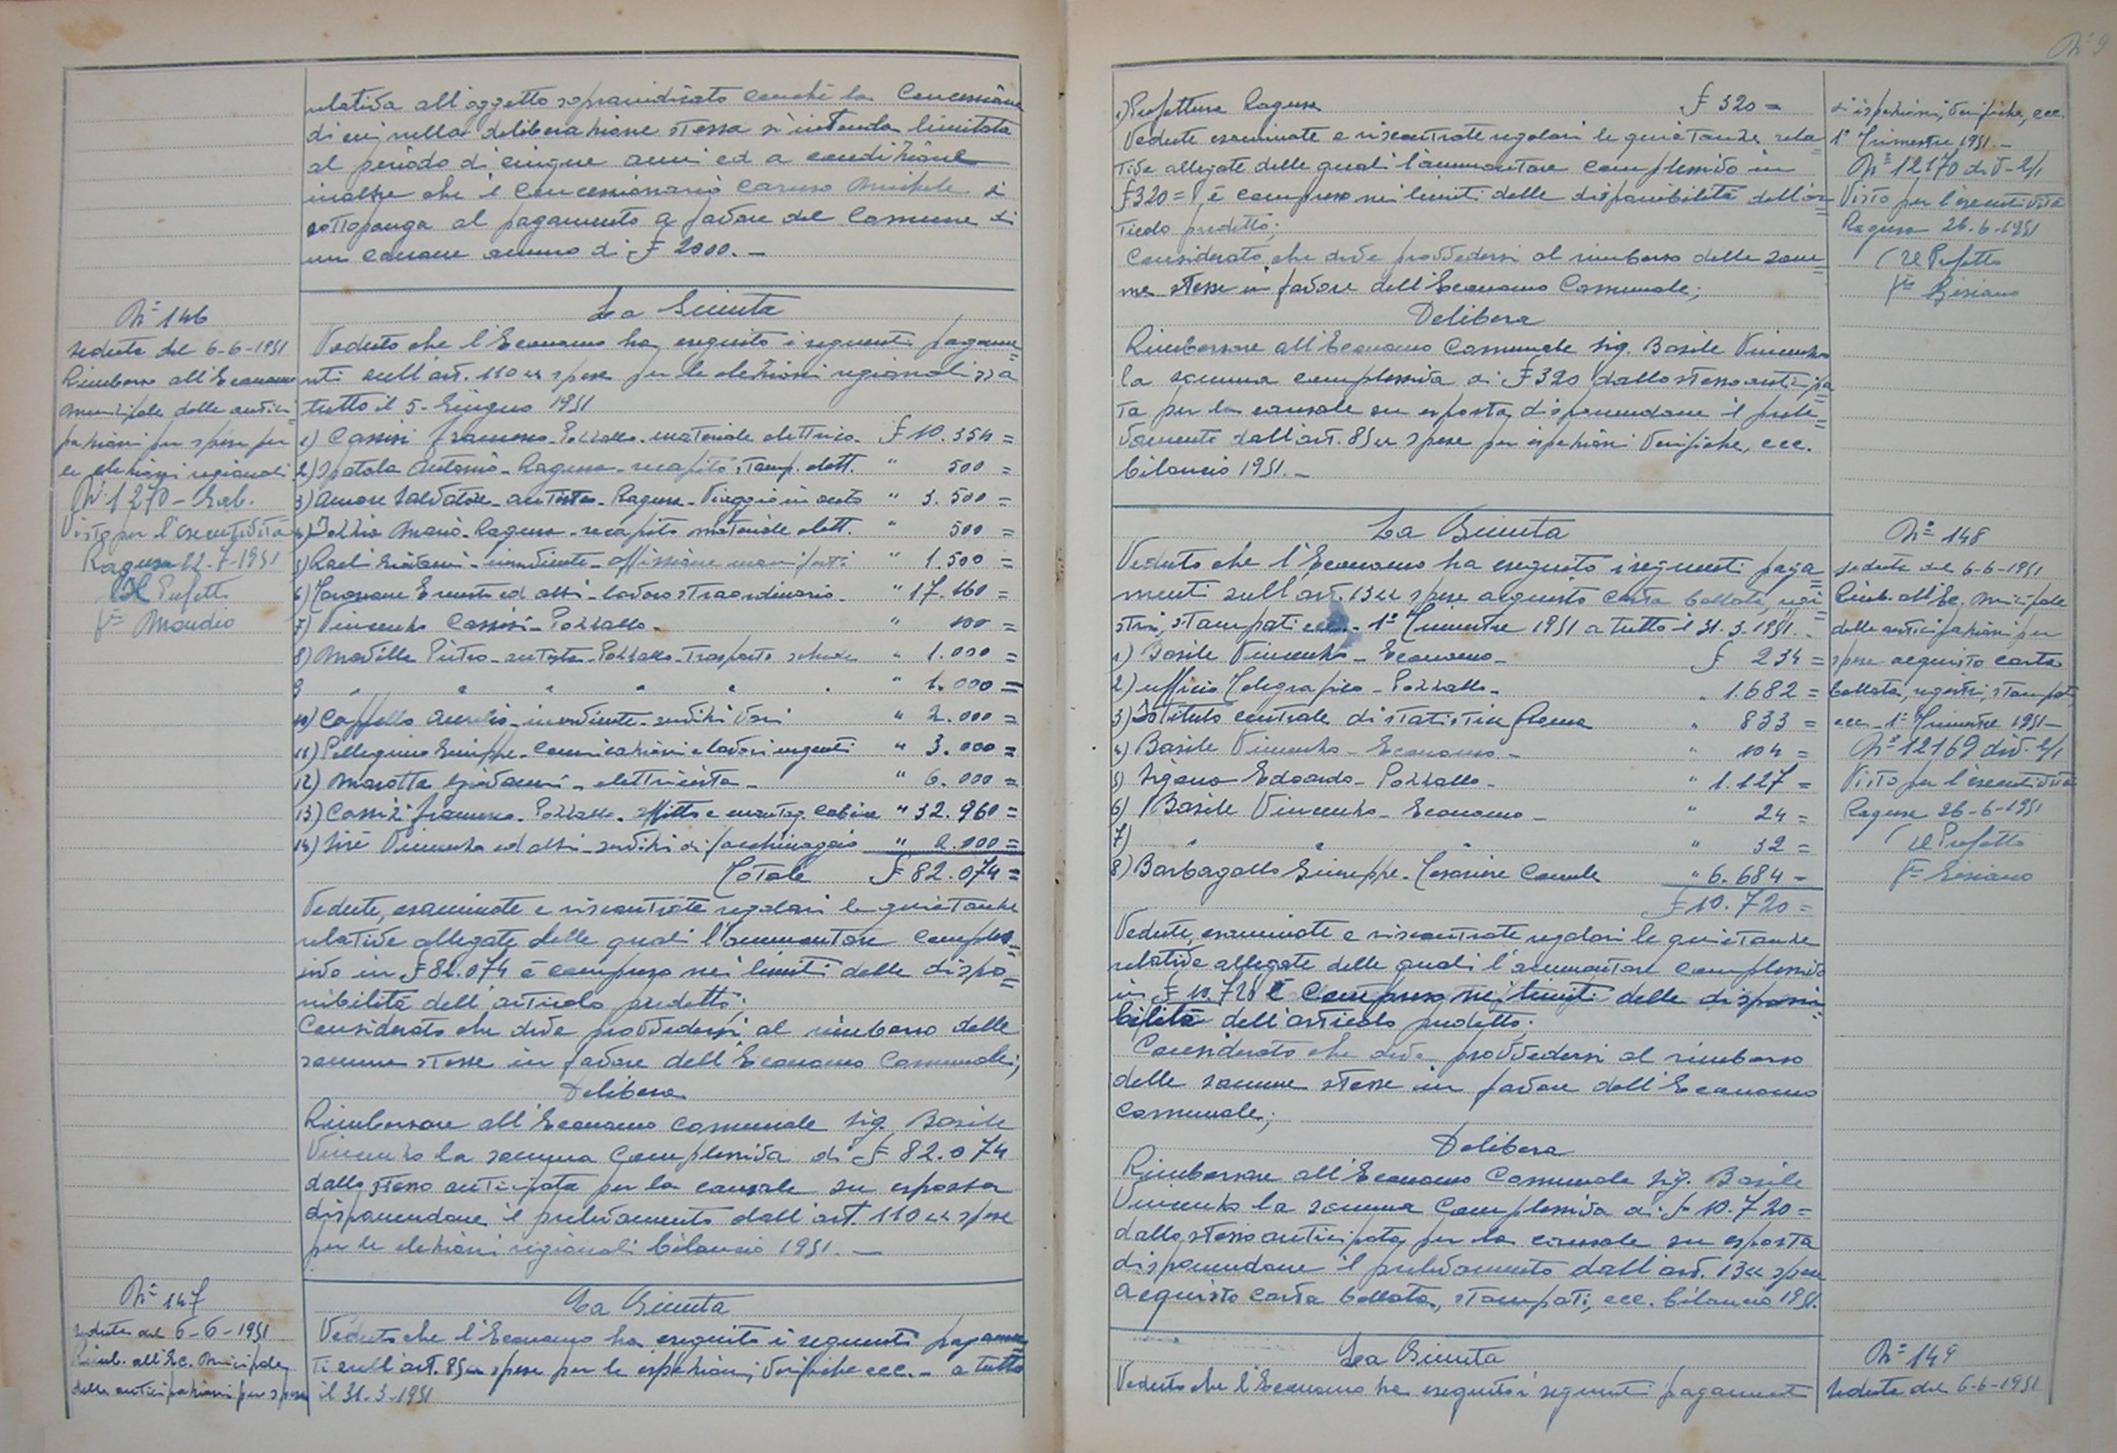 relativa all'oggetto sopraindicato perché la Concessione
di cui nella deliberazione stessa si intenda limitata
al periodo di cinque anni ed a condizione
inoltre che il Concessionario Caruso Michele si
sottoponga al pagamento a favore del Comune di
un canone annuo di £ 2000.-
Nº 146
seduta del 6-6-1951
Rimborso all'Economo
municipale delle antici=
pazioni per spese per
le elezioni regionali
Nº 1270 - Gab.
Visto per l'esecutività
Ragusa 12-7-1951
Il Prefetto
Fto Mondio
La Giunta
Veduto che l'Economo ha eseguito i seguenti pagame=
nti sull'art. 110 spese per le elezioni regionali a
tutto il 5-Giugno 1951
1) Cassisi Francesco-Pozzallo-materiale elettrico- £ 10.354=
2) Spatola Antonio-Ragusa-recapito stamp. elett. " 500=
3) Amore Salvatore-autista-Ragusa-Viaggio in auto " 3.500=
4) Mario-Ragusa-recapito materiale elett. " 500=
5) Giovanni-inserviente-affissione manifesti " 1.500=
6) Ernesto ed altri-lavoro straordinario- " 17.160=
7) Vincenzo Cassisi-Pozzallo- " 100=
8) Modilla Pietro-autista-Pozzallo-Trasporto schede " 1.000=
9 " " " " " " " 1.000=
10) Cappello Aurelio-inserviente-servizi vari " 2.000=
11) Pellegrino Giuseppe-Comunicazioni e lavori urgenti " 3.000=
12) Marotta Giovanni-elettricista- " 6.000=
13) Cassisi Francesco-Pozzallo-affitto e montag. cabine " 32.960=
14) Vincenzo ed altri-servizi di facchinaggio " 2.000=
Totale £ 82.074=
Vedute, esaminate e riscontrate regolari le quietanze
relative allegate delle quali l'ammontare comples=
sivo in £ 82.074 è compreso nei limiti delle dispo=
nibilità dell'articolo predetto;
Considerato che deve provvedersi al rimborso delle
somme stesse in favore dell'Economo Comunale;
Delibera
Rimborsare all'Economo Comunale Sig. Basile
Vincenzo la somma Complessiva di £ 82.074
dallo stesso anticipata per la causale su esposta
disponendone il prelevamento dall'art. 110 spese
per le elezioni regionali bilancio 1951.-
Nº 147
seduta del 6-6-1951
Rimb. all'Ec. Municipale
delle anticipazioni per spese
La Giunta
Veduto che l'Economo ha eseguito i seguenti pagamen=
ti sull'art. 85 spese per le ispezioni, verifiche ecc.- a tutto
il 31-3-1951
Nº 9
1) Prefettura Ragusa £ 320=
Vedute esaminate e riscontrate regolari le quietanze rela=
tive allegate delle quali l'ammontare complessivo in
£ 320= è compreso nei limiti delle disponibilità dell'ar=
ticolo predetto;
Considerato che deve provvedersi al rimborso delle som=
me stesse in favore dell'Economo Comunale;
Delibera
Rimborsare all'Economo Comunale Sig. Basile Vincenzo
la somma complessiva di £ 320 dallo stesso anticipa=
ta per la causale su esposta, disponendone il prele=
vamento dall'art. 85 spese per ispezioni verifiche, ecc.
bilancio 1951.-
di ispezioni, verifiche, ecc.
1º Trimestre 1951.-
Nº 12170 div-2/1
Visto per l'esecutività
Ragusa 26-6-1951
Il Prefetto
Fto Gisiano
La Giunta
Veduto che l'Economo ha eseguito i seguenti paga=
menti sull'art. 13 spese acquisto carta bollata, regi=
stri, stampati ecc.- 1º Trimestre 1951 a tutto il 31.3.1951.-
1) Basile Vincenzo-Economo- £ 234=
2) Ufficio Telegrafico-Pozzallo- " 1.682=
3) Istituto centrale di statistica Roma " 833=
4) Basile Vincenzo-Economo- " 104=
5) Sigona Edoardo-Pozzallo- " 1.127=
6) Basile Vincenzo-Economo- " 24=
7) " " " 32=
8) Barbagallo Giuseppe-Tesoriere Comle " 6.684-
£ 10.720=
Vedute, esaminate e riscontrate regolari le quietanze
relative allegate delle quali l'ammontare complessivo
in £ 10.720 è compreso nei limiti delle disponi=
bilità dell'articolo predetto;
Considerato che deve provvedersi al rimborso
delle somme stesse in favore dell'Economo
Comunale;
Delibera
Rimborsare all'Economo Comunale Sig. Basile
Vincenzo la somma complessiva di £ 10.720=
dallo stesso anticipata per la causale su esposta
disponendone il prelevamento dall'art. 13 spese
Acquisto carta bollata, stampati, ecc. bilancio 1951.
Nº 148
seduta del 6-6-1951
Rimb. all'Ec. Mcipale
delle anticipazioni per
spese acquisto carta
bollata, registri, stampati
ecc.- 1º Trimestre 1951-
Nº 12169 div. 2/1
Visto per l'esecutività
Ragusa 26-6-1951
Il Prefetto
Fto Gisiano
La Giunta
Veduto che l'Economo ha eseguito i seguenti pagamenti
Nº 149
Seduta del 6-6-1951